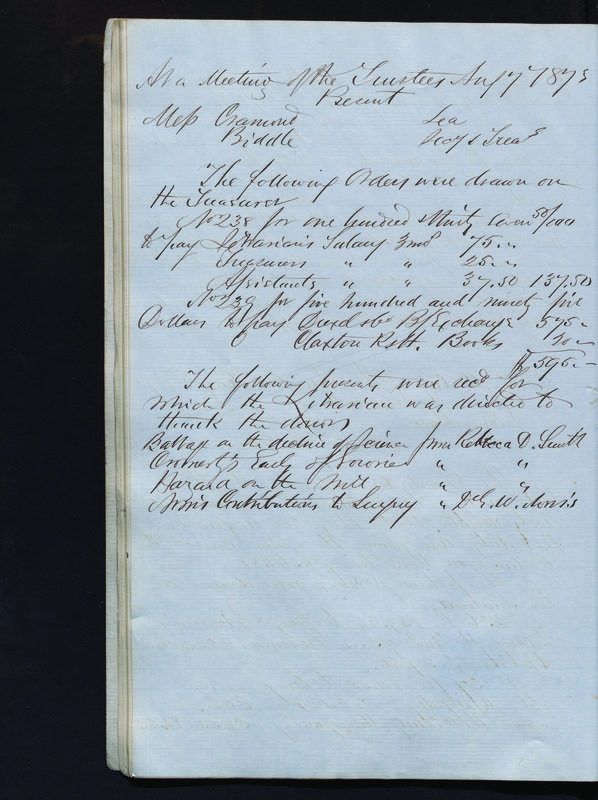 At a Meeting of the Trustees Aug 7 1873
Present
Mess Cramond Lea
Biddle & Treas
The following Orders were drawn on
the Treasurer
No 238 for one hundred & thirty seven 50/100
to pay Librarians Salary 3 mos 75 " "
Treasurers " " 25 " "
Assistants " " 37.50 137.50
No 239 for five hundred and ninety five
Dollars to pay Drexel & Co B/Exchange 575 "
Claxton R & H. Books 20 —
$595. —
The following presents were recd for
which the Librarian was directed to
thank the donors
Babbage on the decline of Science from Rebecca D. Smith
Earl of Gowrie " "
Hazard on the Will " "
Norris Contributions to Surgery " Dr G. W. Norris